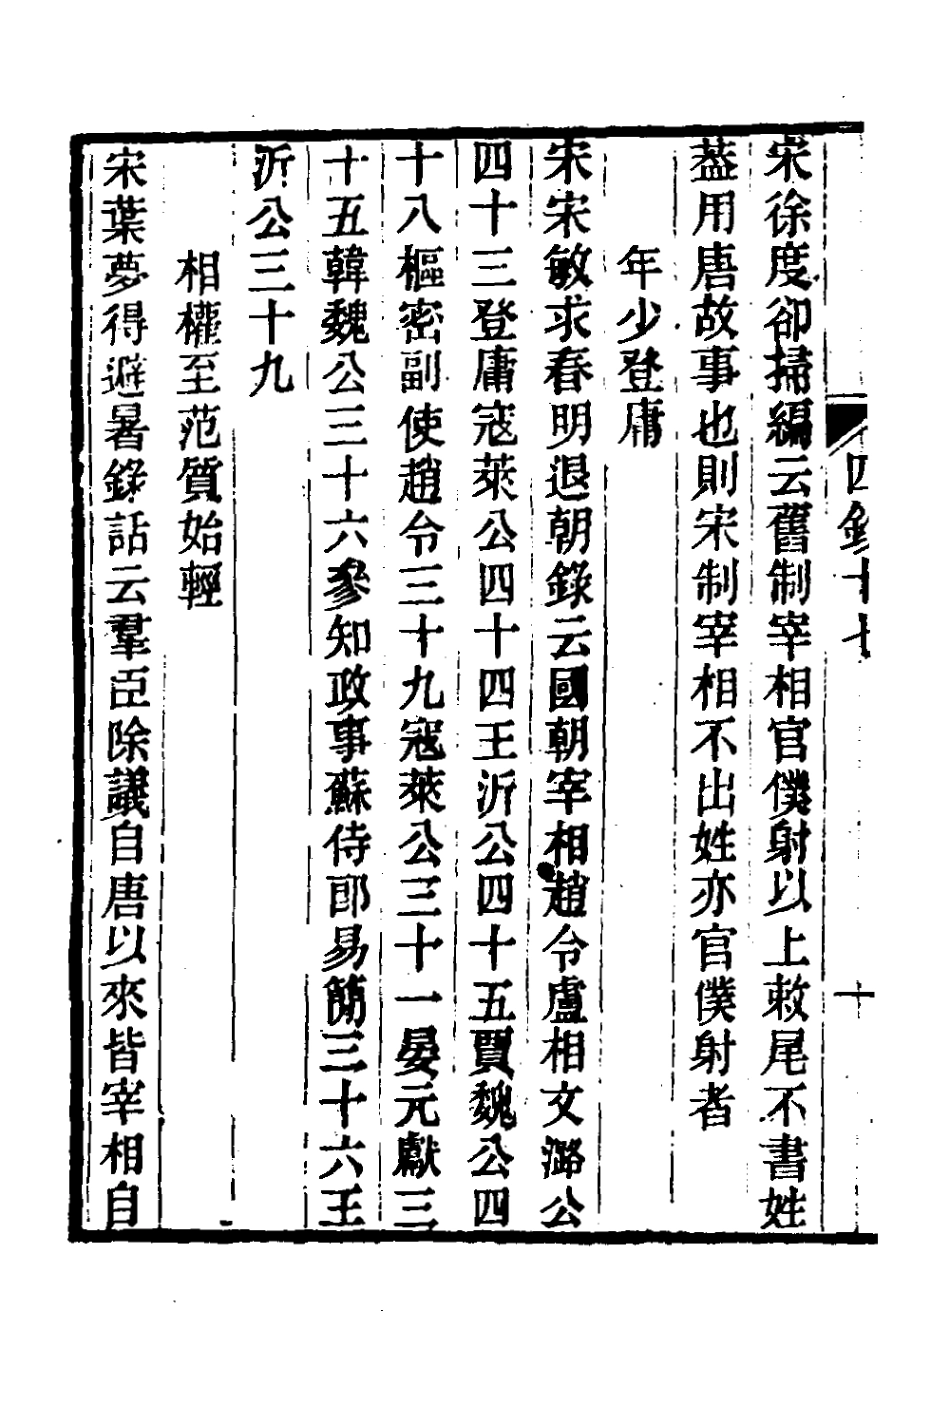 四鈔十七
十
宋徐度卻掃編云舊制宰相官僕射以上敕尾不書姓
葢用唐故事也則宋制宰相不出姓亦官僕射者
年少登庸
宋宋敏求春明退朝錄云國朝宰相趙令盧相文潞公
四十三登庸寇萊公四十四王沂公四十五賈魏公四
十八樞密副使趙令三十九寇萊公三十一晏元獻三
十五韓魏公三十六參知政事蘇侍郎易簡三十六王
沂公三十九
相權至范質始輕
宋葉夢得避暑錄話云羣臣除議自唐以來皆宰相自